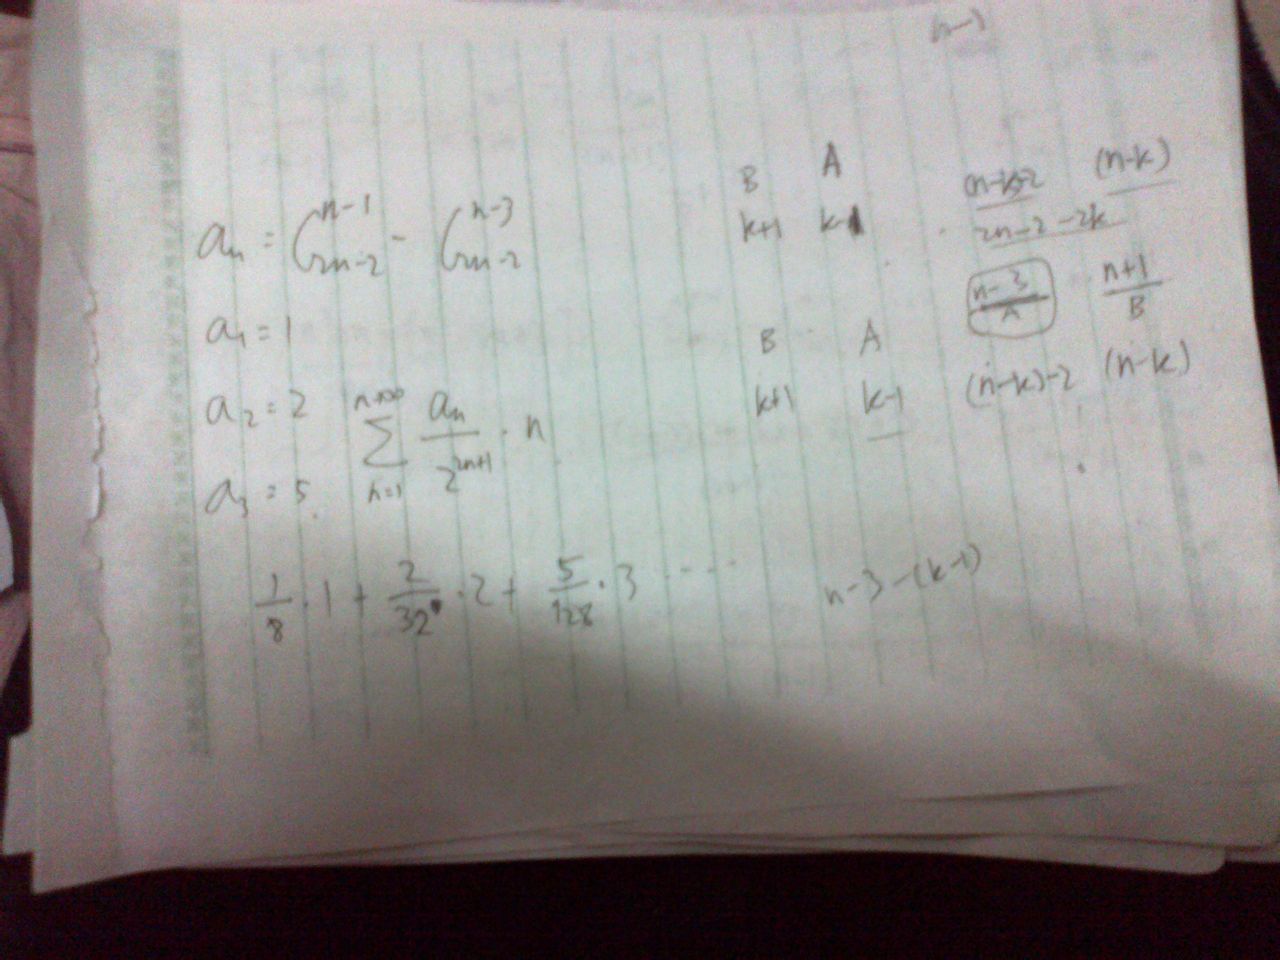 (n-1)
a_n = C_{2n-2}^{n-1} - C_{2n-2}^{n-3}
a_1 = 1
a_2 = 2
a_3 = 5
\sum_{n=1}^{n→+∞} \frac{a_n}{2^{2n+1}} · n
\frac{1}{8} · 1 + \frac{2}{32} · 2 + \frac{5}{128} · 3 ····
B A
k+1 k-1
(n-k)-2 (n-k)
2n-2-2k
\frac{n-3}{A} \frac{n+1}{B}
B A
k+1 k-1 (n-k)-2 (n-k)
n-3-(k-1)